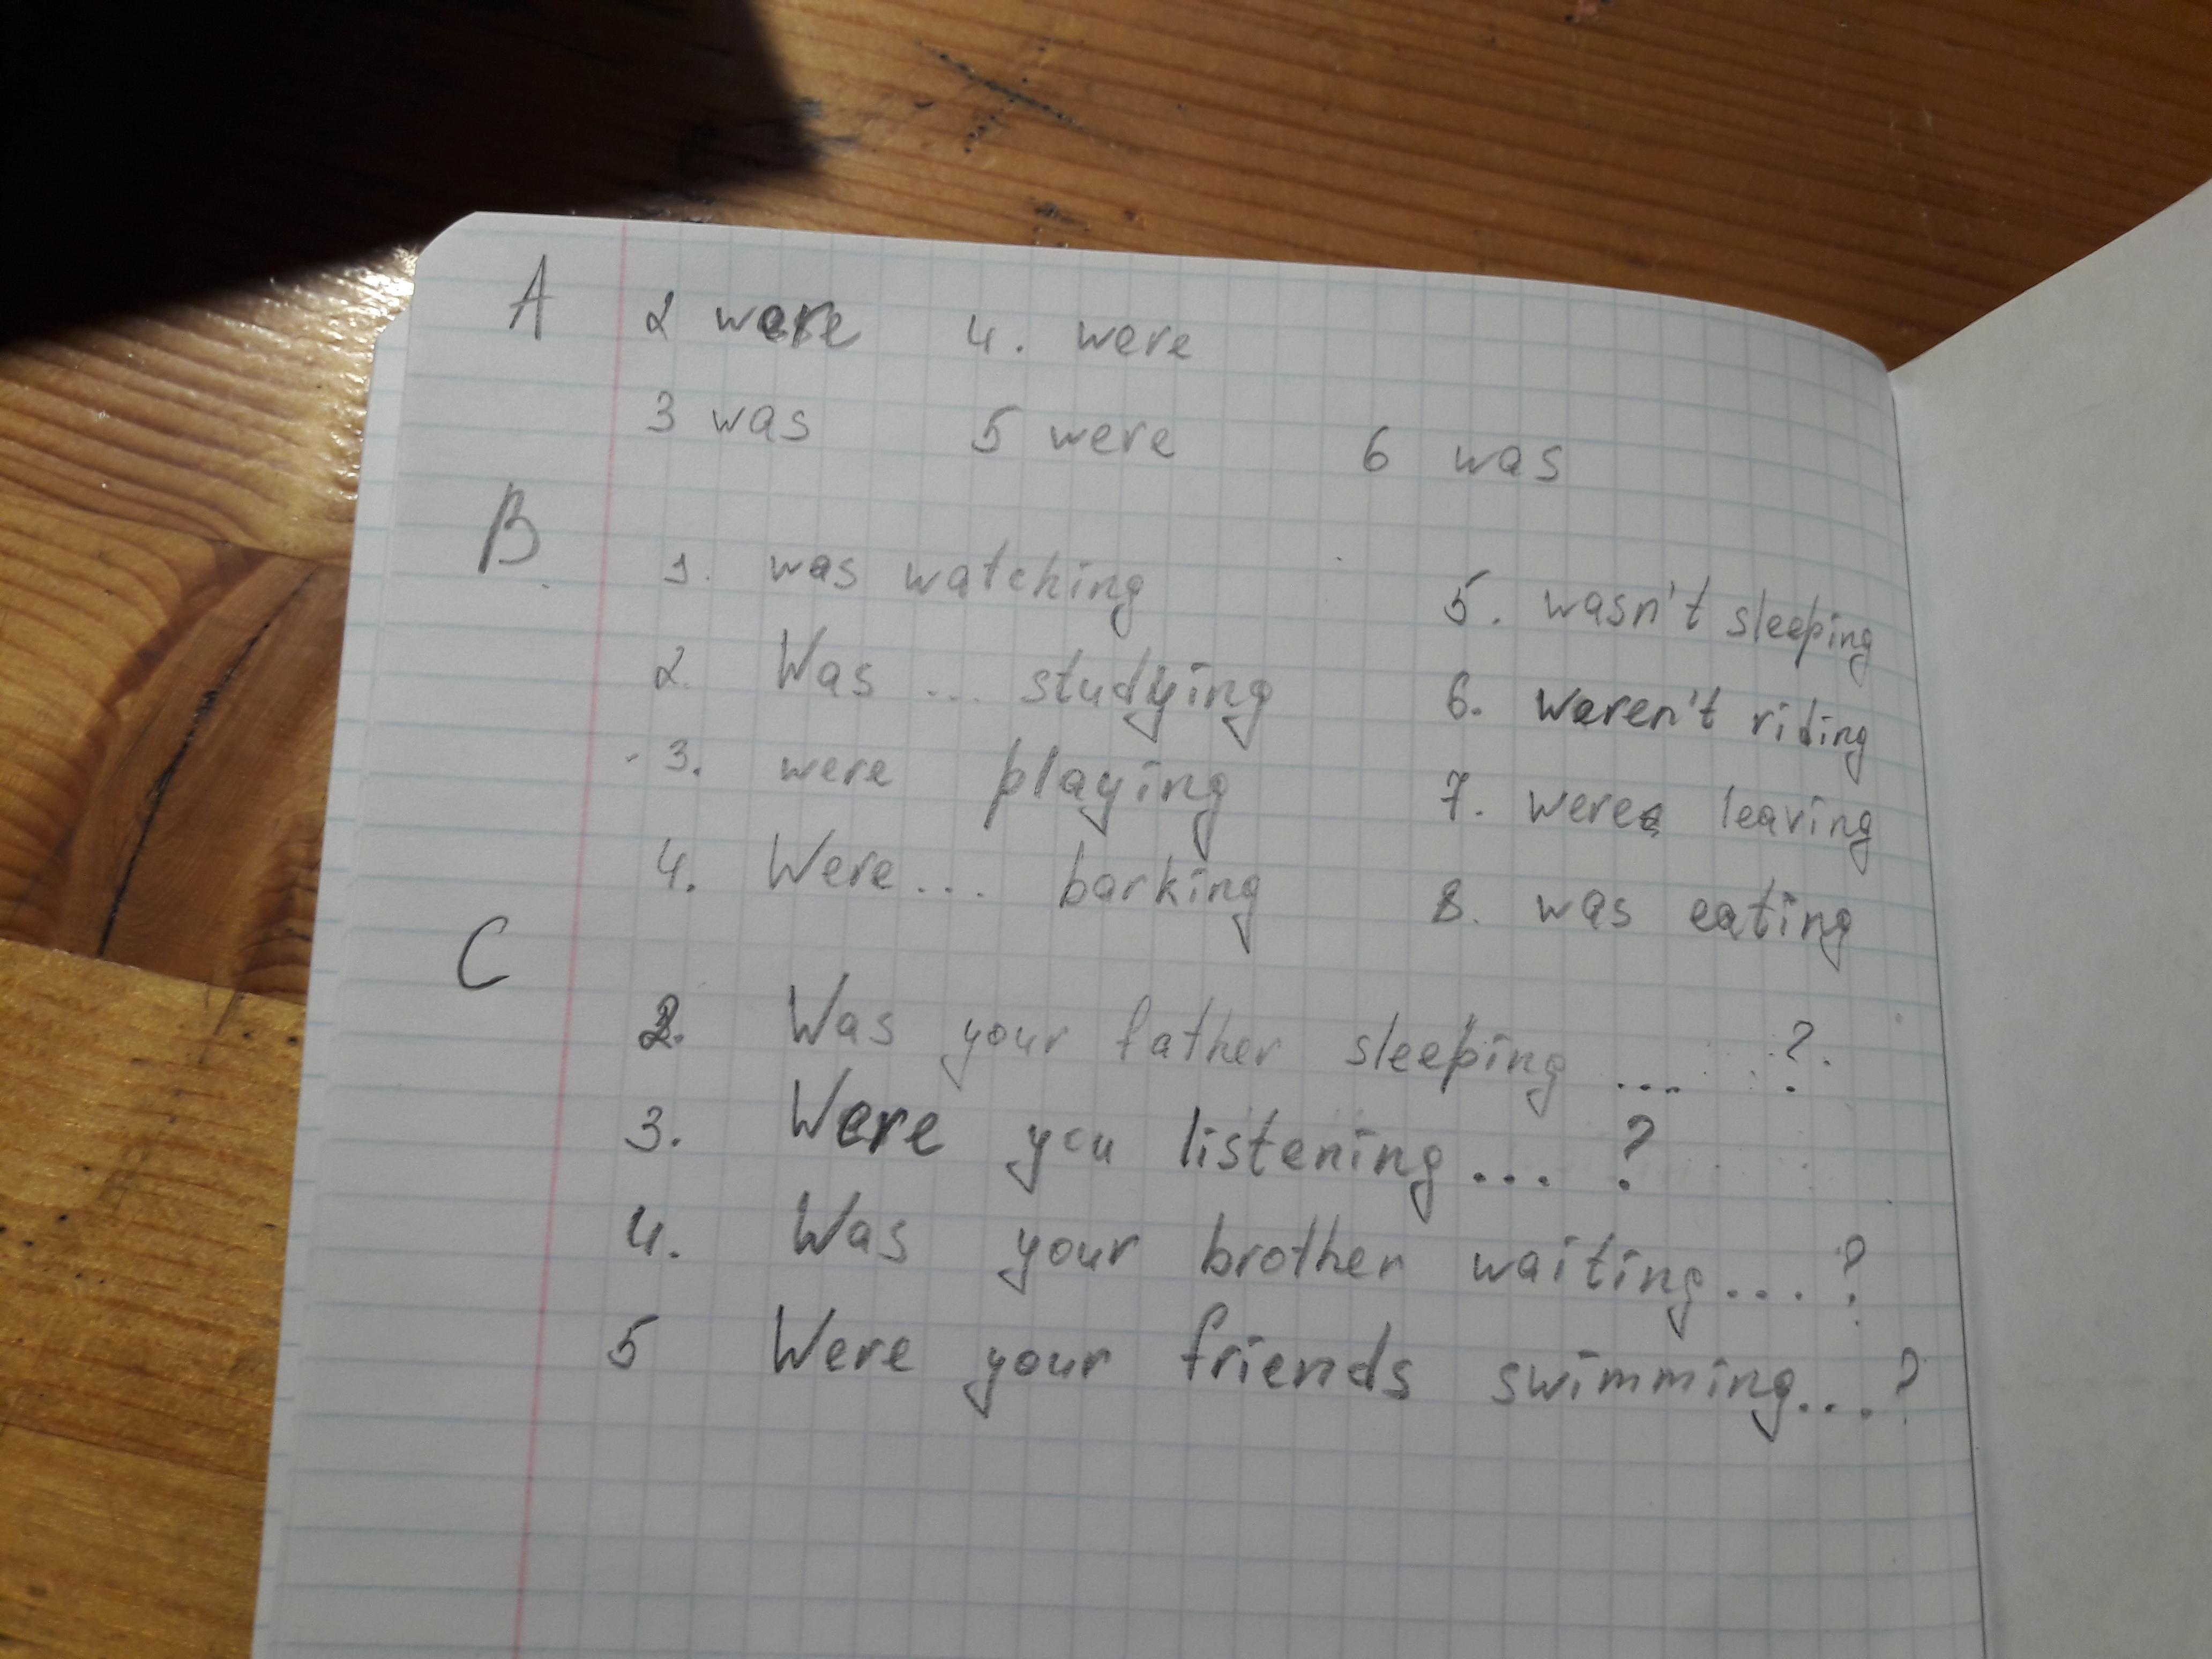 A 2 were 4. were
3 was 5 were 6 was
B 1. was watching 5. wasn't sleeping
2. Was ... studying 6. waren't riding
3. were playing 7. were leaving
4. Were .... barking 8. was eating
C
2. Was your father sleeping .... ?
3. Were you listening .... ?
4. Was your brother waiting .... ?
5 Were your friends swimming .... ?